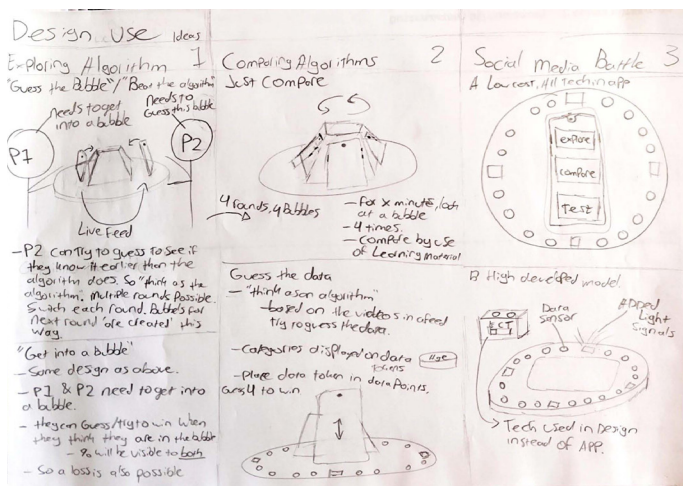 Design Use Ideas
Exploring Algorithm 1
"Guess the Bubble"/"Beat the algorithm"
Needs to get
into a bubble
Needs to
Guess this bubble
P1
P2
Live Feed
- P2 can try to guess to see if
they know it earlier than the
algorithm does. So "think as the
algorithm. Multiple rounds Possible.
Switch each round. Bubbels for
next round 'are created' this
way.
"Get into a Bubble"
- Same design as above.
- P1 & P2 need to get into
a bubble.
- they can Guess/try to win when
they think they are in the bubble
- % will be visible to both
- So a loss is also possible
Comparing Algorithms 2
Just Compare
4 rounds, 4 Bubbles
- For x minute, look
at a bubble
- 4 times.
- compare by use
of Learning Material
Guess the data
- "think as an algorithm"
- based on the videos in a feed
try to guess the data.
- Categories displayed on data
tokens
Age
- Place data token in data Points.
Guess 4 to win
Social Media Battle 3
A Low cost, All Tech in app
explore
compare
Test
B High developed model.
Data
sensor
Added
Light
Signals
Tech used in Design
instead of APP.